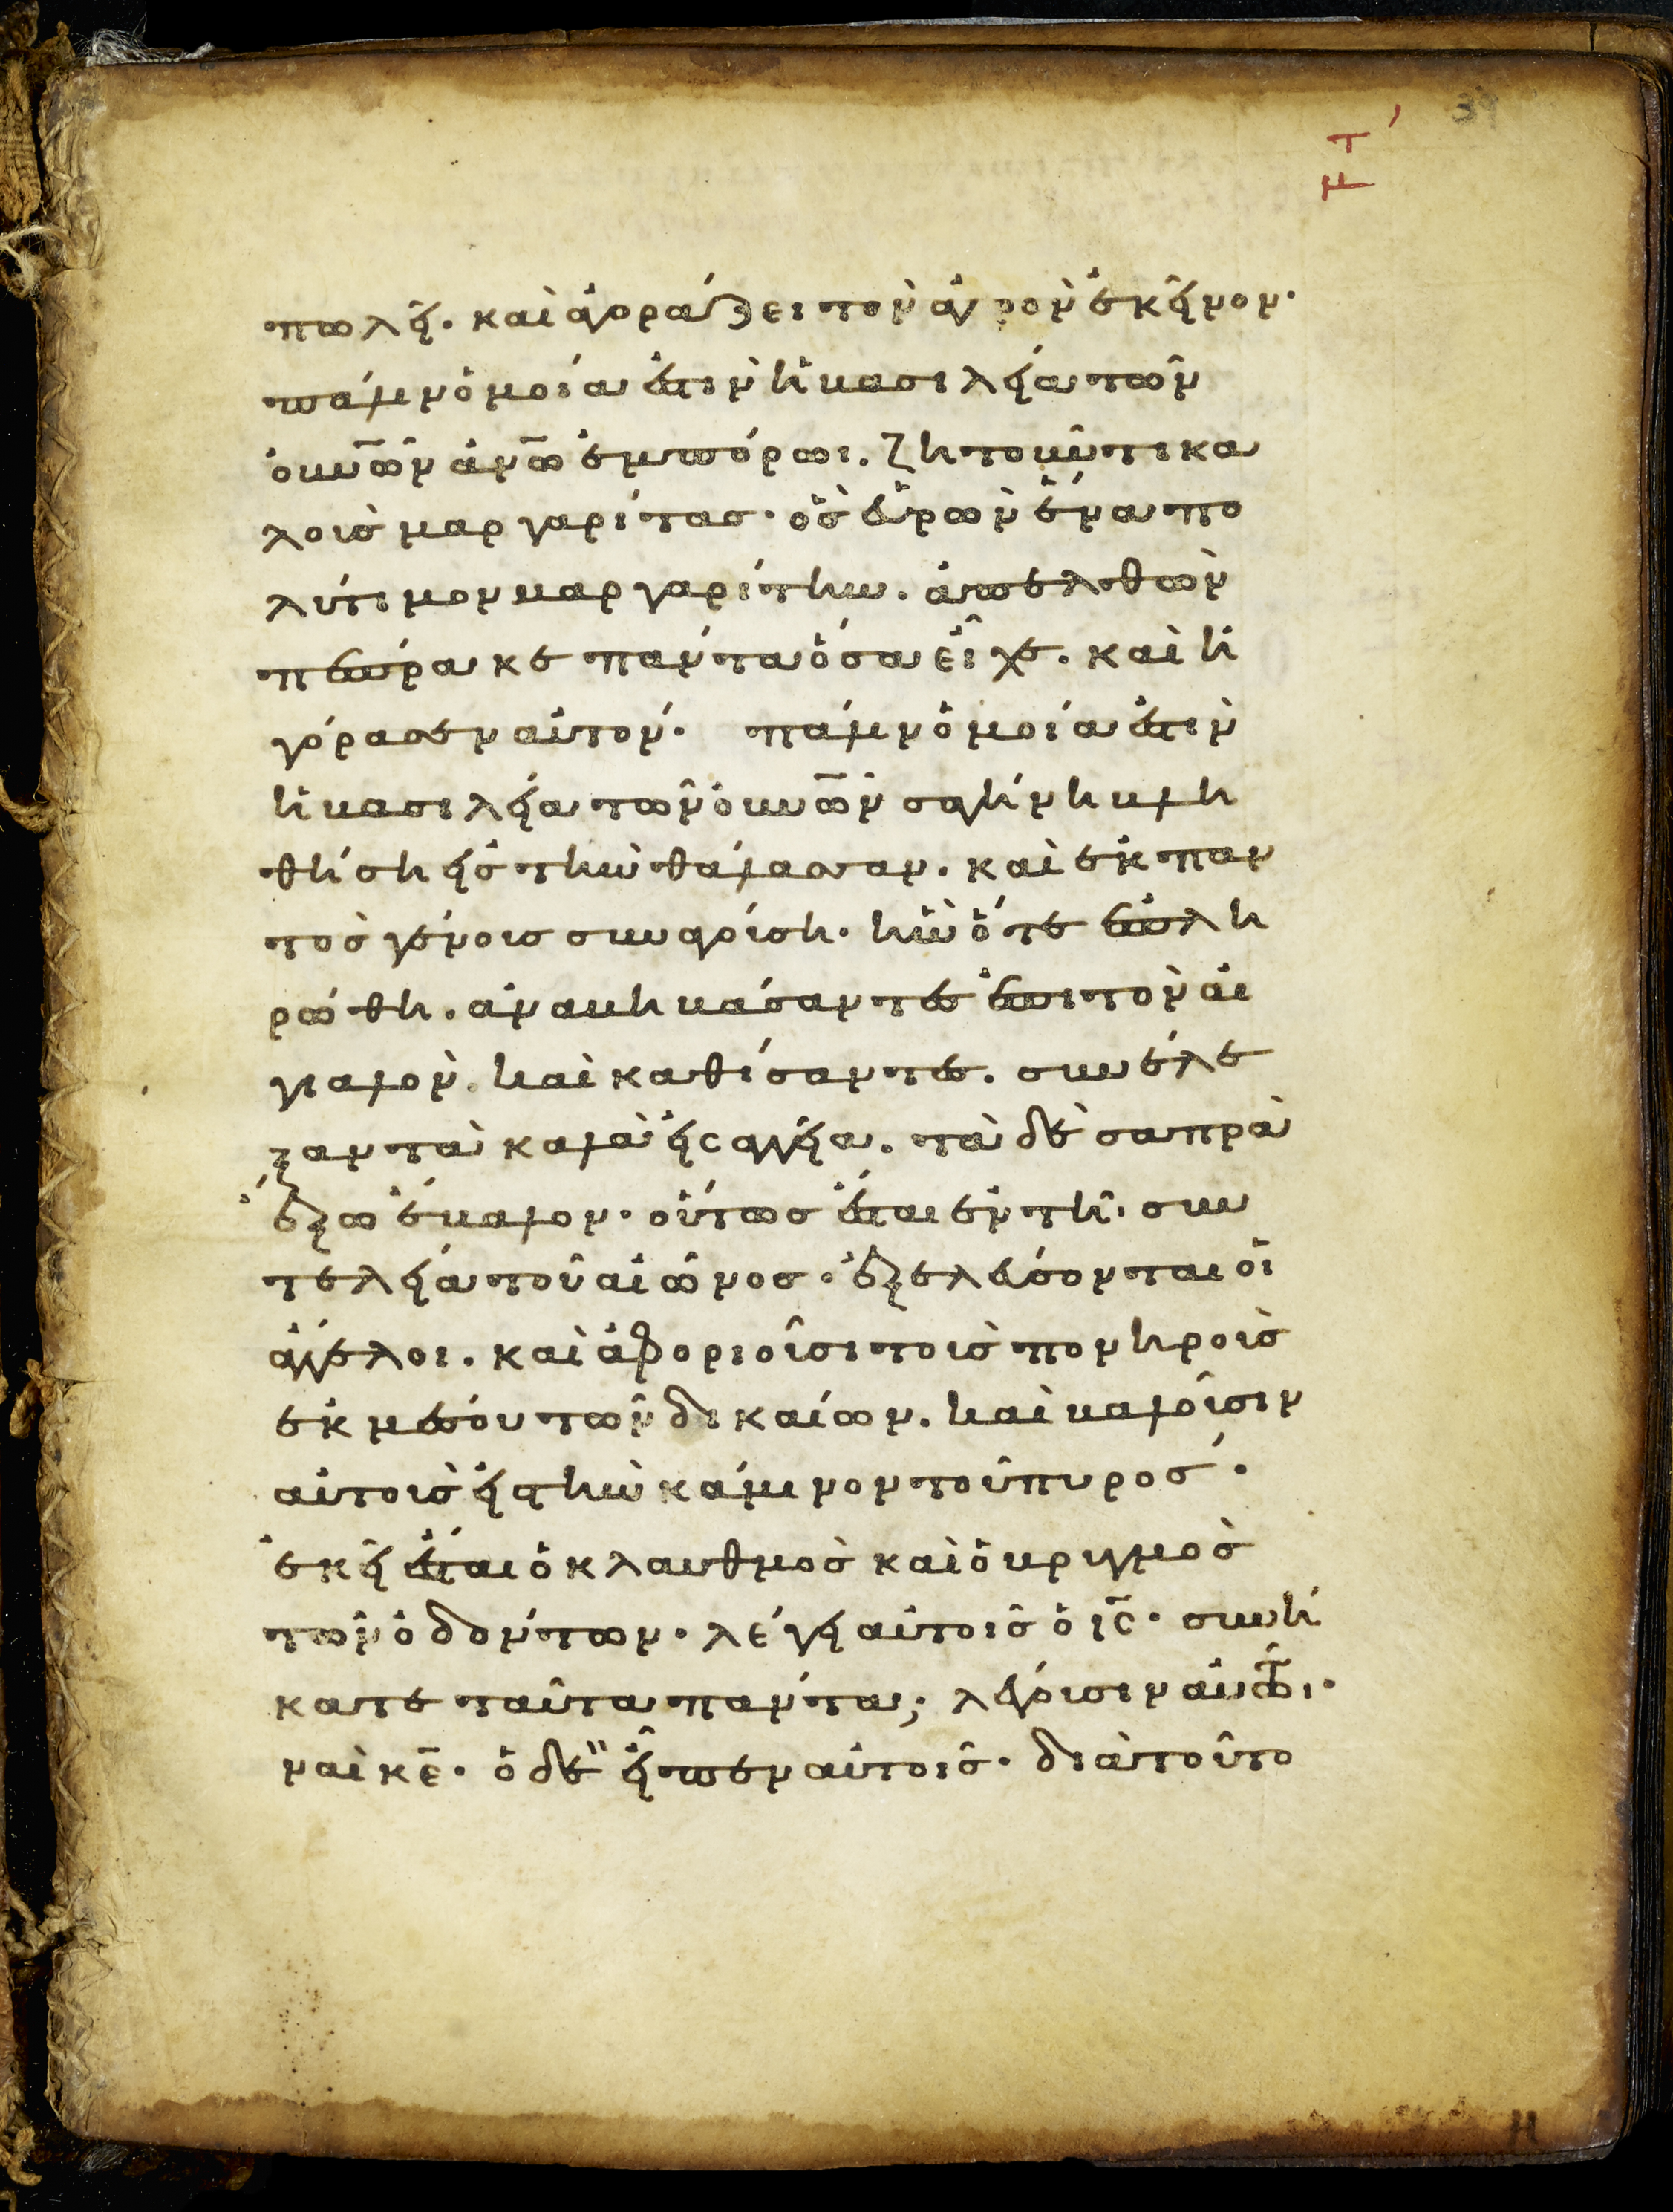 39
πωλεῖ. καὶ ἀγοράζει τὸν ἀγρὸν ἐκεῖνον·
πάλιν ὁμοία ἐστὶν ἡ βασιλεία τῶν
οὐν͞ων ἀν͞ω ἐμπόρωι. ζητοῦντι κα
λοὺς μαργαρίτας· ὃς εὑρὼν ἕνα πο
λύτιμον μαργαρίτην. ἀπελθὼν
πέπρακε πάντα ὅσα εἶχε. καὶ ἠ
γόρασεν αὐτόν· πάλιν ὁμοία ἐστὶν
ἡ βασιλεία τῶν οὐν͞ων σαγήνη βλη
θείση εἰς τὴν θάλασσαν. καὶ ἐκ παν
τὸς γένους συναγούση· ἣν ὅτε ἐπλη
ρώθη. ἀναβηβάσαντες ἐπὶ τὸν αἰ
γιαλὸν. καὶ καθίσαντες. συνέλε
ξαν τὰ καλὰ εἰς ἀγγεῖα. τὰ δὲ σαπρὰ
ἔξω ἔβαλον· οὕτως ἔσται ἐν τῆ συν
τελεία τοῦ αἰῶνος· ἐξελεύσονται οἱ
ἄγγελοι. καὶ ἀφοριοῦσι τοὺς πονηροὺς
ἐκ μέσου τῶν δικαίων. καὶ βαλοῦσιν
αὐτοὺς εἰς τὴν κάμινον τοῦ πυρός·
ἐκεῖ ἔσται ὁ κλαυθμὸς καὶ ὁ βρυγμὸς
τῶν ὀδόντων· λέγει αὐτοῖς ὁ ι͞ς· συνή
κατε ταῦτα πάντα; λέγουσιν αὐτῶι·
ναὶ κ͞ε· ὁ δὲ εἶπεν αὐτοῖς· διὰ τοῦτο